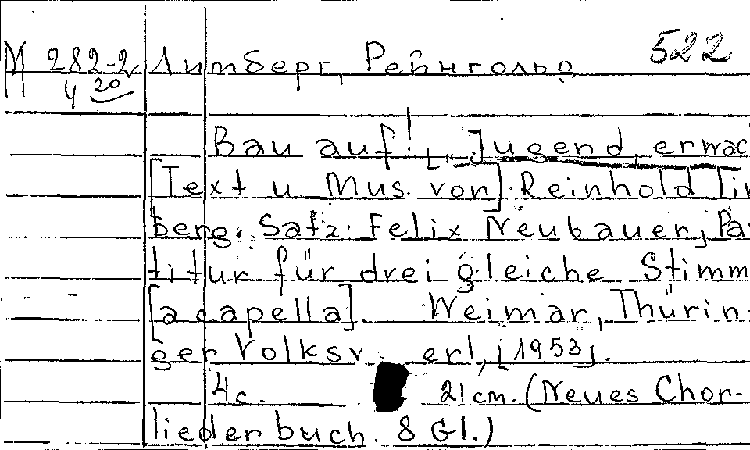 М 282-2 Лимберг, Рейнгольд 522
4 20
Bau auf! Jugend, erwac
[Text u Mus. von] Reinhold Lim
berg. Satz: Felix Neubauer, Pa
titur für drei gleiche Stimm
[a capella]. Weimar, Thürin-
ger Volksv. erl, [1953].
4 c. 21 cm. (Neues Chor-
liederbuch. 8 Gl.)